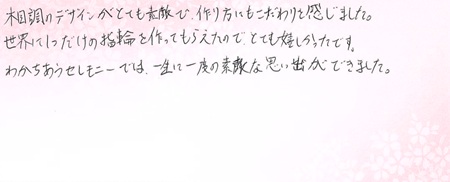 木目調のデザインがとても素敵で、作り方にもこだわりを感じました。
世界に1つだけの指輪を作ってもらえたので、とても嬉しかったです。
わかちあうセレモニーでは、一生に一度の素敵な思い出ができました。